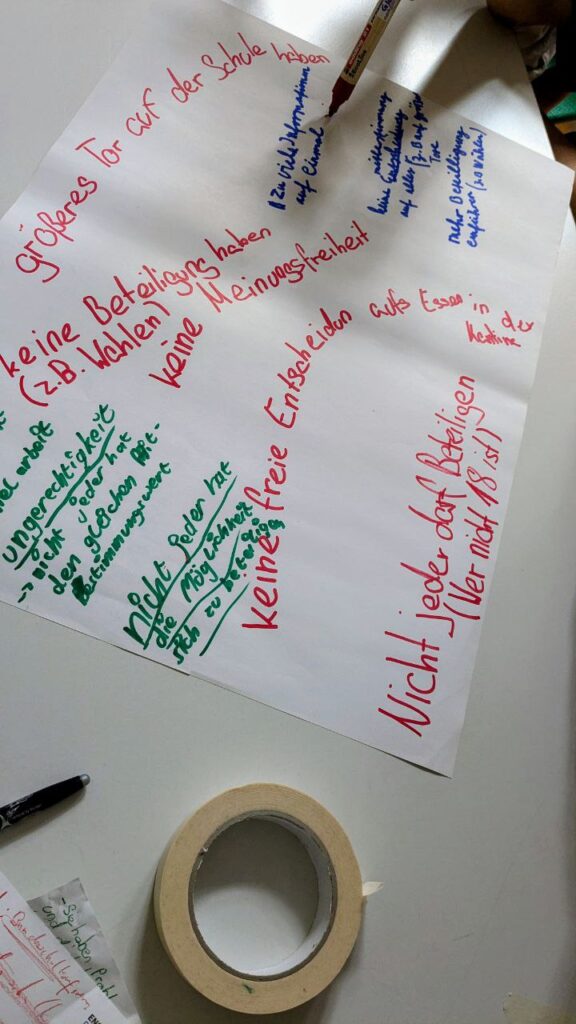 größeres Tor auf der Schule haben
zu viele Informationen
auf Einmal
keine Entscheidung
auf alles (z.B. auf größere
Tore
mehr Beteiligung
einführen
keine Beteiligung haben
(z.B. Wahlen)
keine Meinungsfreiheit
keine freie Entscheidun aufs Essen in der
Kantine
Nicht jeder darf Beteiligen
(Wer nicht 18 ist)
arbeit
ungerechtigkeit
-> nicht jeder hat
den gleichen Mit-
bestimmungswert
nicht jeder hat
die Möglichkeit
sich zu beteiligen
und